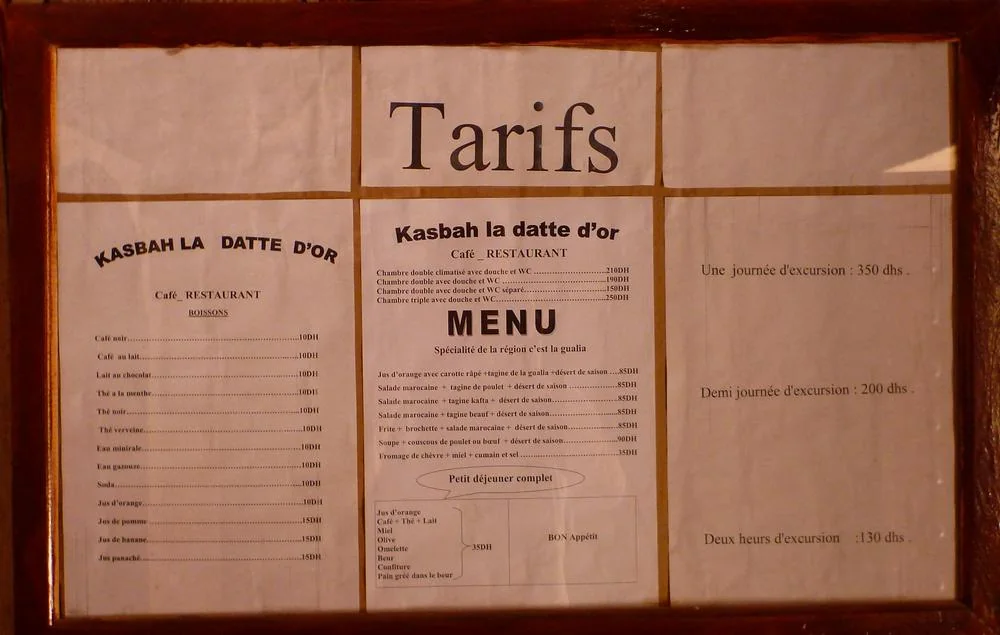 Tarifs
KASBAH LA DATTE D'OR
Café_ RESTAURANT
BOISSONS
Café noir.....10DH
Café au lait.....10DH
Lait au chocolat.....10DH
Thé a la menthe.....10DH
Thé noir.....10DH
Thé verveine.....10DH
Eau minirale.....10DH
Eau gazouze.....10DH
Soda.....10DH
Jus d'orange.....10DH
Jus de pomme.....15DH
Jus de banane.....15DH
Jus panaché.....15DH
Kasbah la datte d'or
Café _ RESTAURANT
Chambre double climatisé avec douche et WC .....210DH
Chambre double avec douche et WC .....190DH
Chambre double avec douche et WC séparé.....150DH
Chambre triple avec douche et WC.....250DH
MENU
Spécialité de la région c'est la gualia
Jus d'orange avec carotte râpé +tagine de la gualia +désert de saison ....85DH
Salade marocaine + tagine de poulet + désert de saison .....85DH
Salade marocaine + tagine kafta + désert de saison.....85DH
Salade marocaine + tagine beauf + désert de saison.....85DH
Frite + brochette + salade marocaine + désert de saison.....85DH
Soupe + couscous de poulet ou bœuf + désert de saison.....90DH
Fromage de chèvre + miel + cumain et sel .....35DH
Petit déjeuner complet
Jus d'orange
Café + Thé + Lait
Miel
Olive
Omelette
Beur
Confiture
Pain gréé dans le beur
35DH
BON Appétit
Une journée d'excursion : 350 dhs .
Demi journée d'excursion : 200 dhs .
Deux heurs d'excursion :130 dhs .